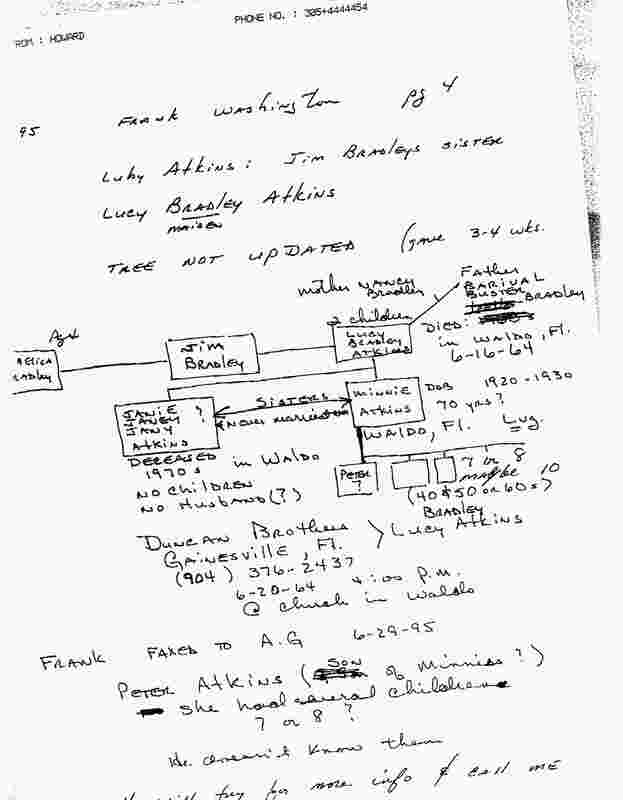 PHONE NO. : 305+4444454
ROM : HOWARD
95
FRANK WASHINGTON pg 4
Luby Atkins: Jim Bradleys sister
Lucy Bradley Atkins
maiden
TREE NOT UPDATED (gave 3-4 wks.
mother NANCY Bradley
Father BARIVAL BUSTER BRADLEY
DIED:
in WALDO, Fl.
6-16-64
2 children
LUCY BRADLEY ATKINS
JIM BRADLEY
JANIE ?
JANEY
JANY
ATKINS
SISTERS
Never married
MINNIE ATKINS
DOB 1920-1930
70 yrs?
WALDO, Fl.
DECEASED 1970s in WALDO
NO CHILDREN
NO HUSBAND(?)
PETER ?
7 or 8
maybe 10
(40 & 50 or 60s)
DUNCAN Brothers
GAINESVILLE, Fl.
(904) 376-2437
BRADLEY
Lucy Atkins
6-20-64 4:00 p.m.
@ church in Waldo
FRANK FAXED TO A.G 6-29-95
PETER Atkins (SON of Minnies?)
she had several children
7 or 8 ?
He doesn't know them
will try for more info & call me